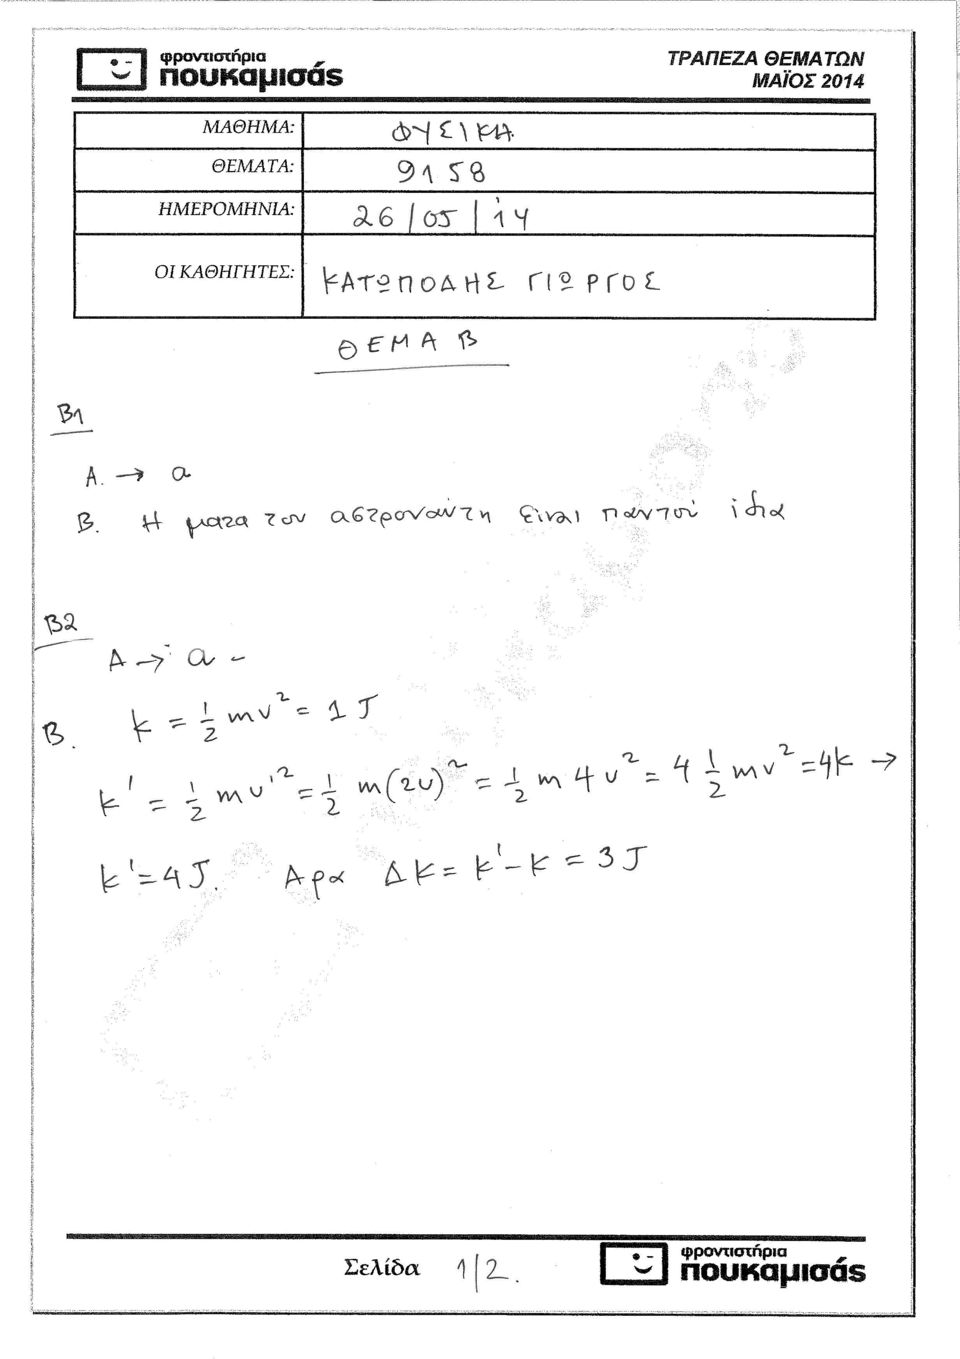 φροντιστήρια
πουκαμισάς
ΤΡΑΠΕΖΑ ΘΕΜΑΤΩΝ
ΜΑΪΟΣ 2014
ΜΑΘΗΜΑ: ΦΥΣΙΚΗ
ΘΕΜΑΤΑ: 9158
ΗΜΕΡΟΜΗΝΙΑ: 26/05/14
ΟΙ ΚΑΘΗΓΗΤΕΣ: ΚΑΤΩΠΟΔΗΣ ΓΙΩΡΓΟΣ
ΘΕΜΑ Β
Β1
Α. → α
Β. Η μαζα του αστροναύτη είναι παντού ίδια
Β2
Α → α -
Β. k = 1/2 mv² = 1 J
k' = 1/2 mv'² = 1/2 m(2v)² = 1/2 m 4v² = 4 1/2 mv² = 4k →
k' = 4 J. Αρα ΔK = k' - k = 3 J
Σελίδα 1/2.
φροντιστήρια
πουκαμισάς